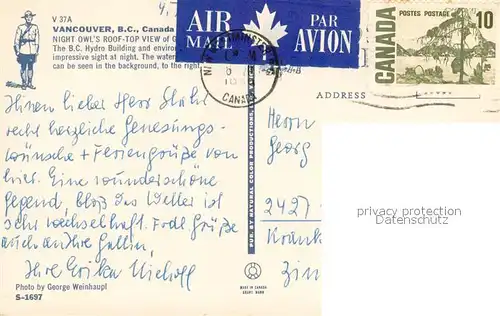 V 37A
VANCOUVER, B.C., Canada
NIGHT OWL'S ROOF-TOP VIEW OF G
The B.C. Hydro Building and environ
impressive sight at night. The water
can be seen in the background, to the right.
AIR MAIL
PAR AVION
CANADA
Postes Postage
10
CANADA
ADDRESS
Ihnen lieber Herr Stahl
recht herzliche Genesungs-
wünsche + Feriengrüße von
hier. Eine wunderschöne
Gegend, bloß das Wetter ist
sehr wechselhaft. Frdl Grüße
auch an Ihre Gattin,
Ihre Erika
Herrn
Georg
2427
Kranken
Zim
PUB. BY NATURAL COLOR PRODUCTIONS
MADE IN CANADA
Photo by George Weinhaupl
S-1697
privacy protection
Datenschutz